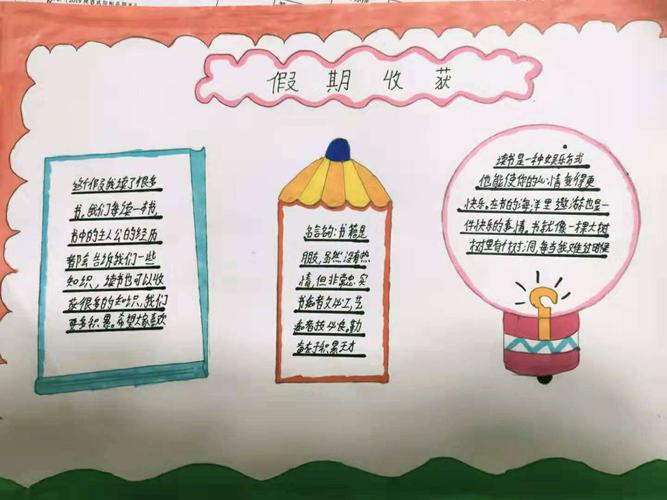 假期收获
这个假段我读了很多
书,我们每读一本书,
书中的主人公的经历
都会告诉我们一些
知识,读书也可以收
获很多的知识,我们
要多积累。希望大家喜欢
名言韵:书籍是
朋友,虽然没有热
情,但非常忠实
书痴者文必工,艺
痴者技必良。勤
奋在于积累天才
读书是一种娱乐方式
他能使你的心情变得更
快乐。在书的海洋里遨游也是一
件快乐的事情,书就像一棵大树
树里有个树洞,每当我难过时便